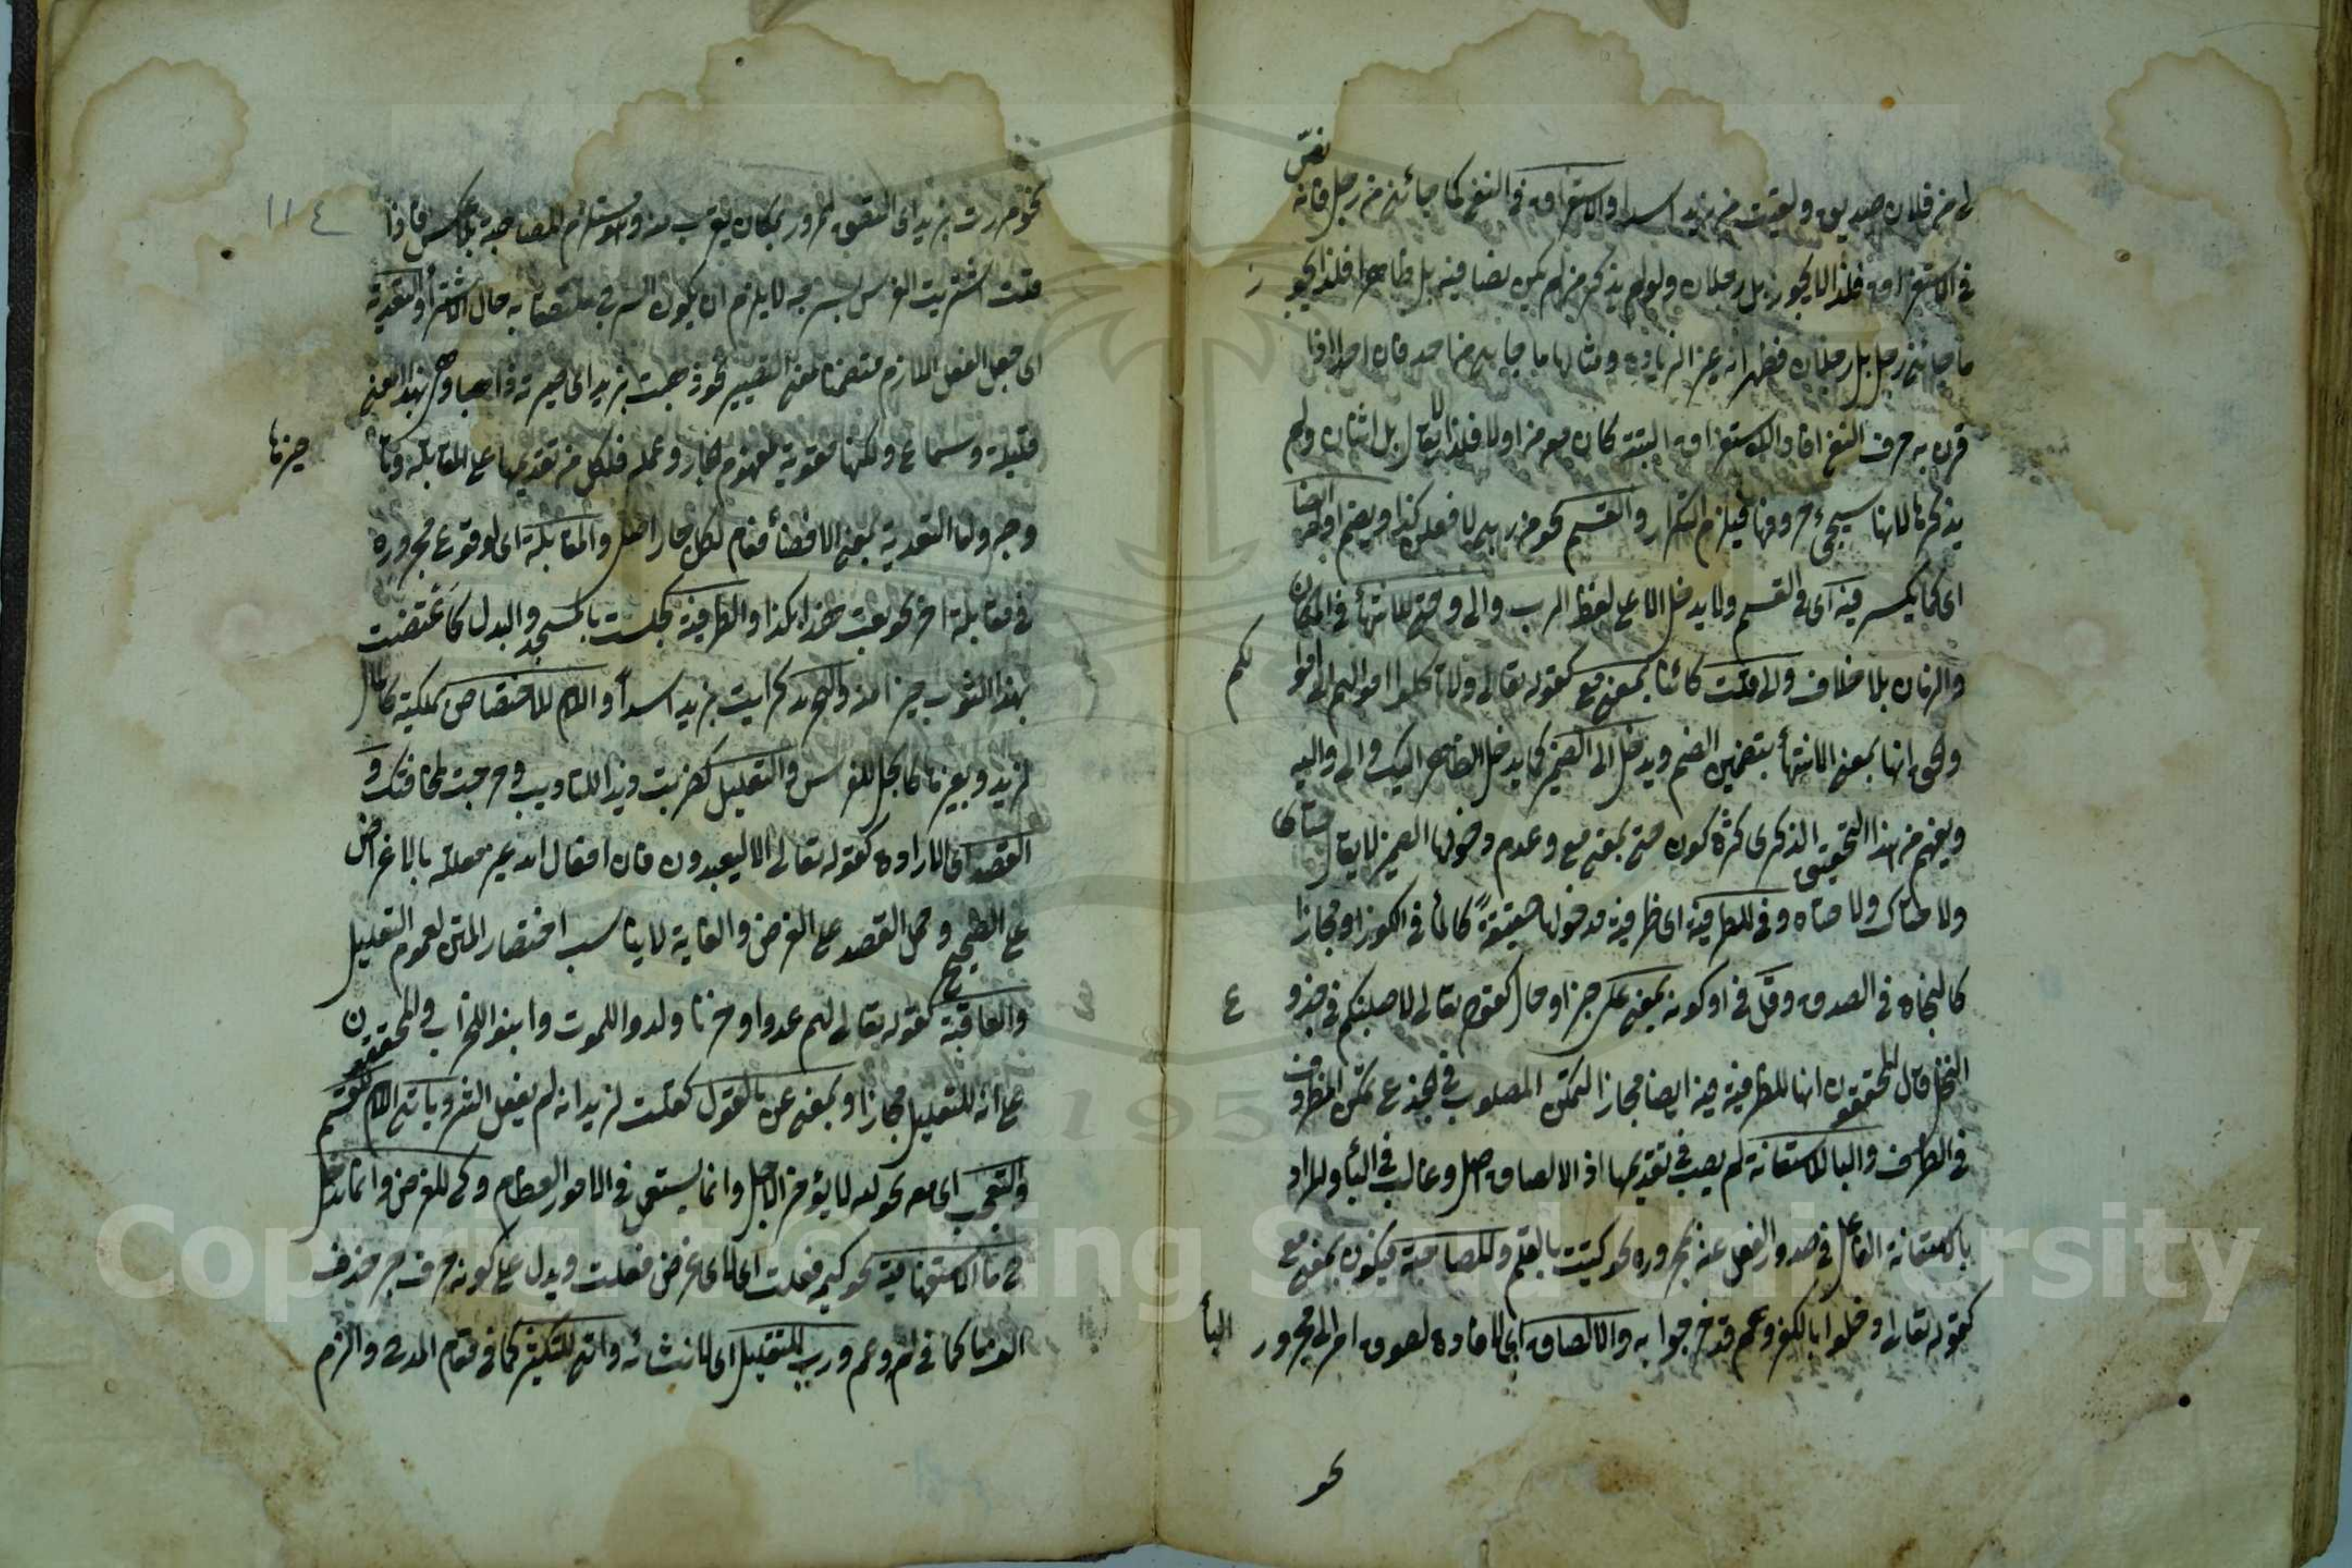 لى من فلان صديق ولقيت من زيد اسدا والاستغراق في النفي كما جائني من رجل فانه نص
في الاستغراق فلذا لا يجوز بل رجلان ولو لم يذكر من لم يكن نصا فيه بل ظاهرا فلذا يجوز
ما جائني رجل بل رجلان فظهر انه غير الزيادة ومثالها ما جاءني من احد فان احدا اذا
قرن به حرف النفي افاد الاستغراق البتة كان معه من اولا فلذا لا يقال بل اثنان ولم
يذكرها لانها سيجيء حروفها فيلزم التكرار والقسم نحو من ربي لافعلن كذا ويضم اوله ايضا
اى كما يكسر فيه اى في القسم ولا يدخل الا على لفظ الرب والى وحتى للانتهاء في المكان
والزمان بلا خلاف والى قلت كائنا بمعنى مع كقوله تعالى ولا تاكلوا اموالهم الى اموالكم
والحق انها بمعنى الانتهاء بتضمين الضم ويدخل الى الضمير كما يدخل الظاهر اليك والى واليه
ويفهم من هذا التحقيق الذكرى كثرة كون حتى بمعنى مع وعدم دخولها الضمير لا يقال حتاى
ولا حتاك ولا حتاه وفي للظرفية اى ظرفية مدخولها حقيقة كالماء في الكوز او مجازا
كالنجاة في الصدق وقل في او كونه بمعنى على جزا وحال كقوله تعالى لاصلبنكم في جذوع
النخل قال المحققون انها للظرفية فيه ايضا مجازا لتمكن المصلوب في الجذع تمكن المظروف
في الظرف والبا للاستعانة لم يصب في تقديمها اذ الالصاق اصل وغالب في الباء والمراد
بالاستعانة الفاعل في صدور الفعل عنه بمجروره نحو كتبت بالقلم وللمصاحبة فيكون بمعنى مع
كقوله تعالى وقد دخلوا بالكفر وهم قد خرجوا به والالصاق اى لافادة لصوق امر الى مجرور الباء
نحو
١١٤
نحو مررت بزيد اى التصق مرور بمكان يقرب منه وهو مستلزم للمصاحبة بلا عكس فاذا
قلت اشتريت الفرس بسرجه لا يلزم ان يكون السرج ملتصقا به حال الاشتراء والتعدية
اى جعل الفعل اللازم متضمنا معنى التصيير نحو ذهبت بزيد اى صيرته ذاهبا وهى بهذا المعنى
قليلة وسماع ولكنها معونة لمفهوم الجار وعمله فلكل من تقديمها على المقابلة وتا خيرها
وجه ولان التعدية بمعنى الافضاء فعام لكل جار اصل والمقابلة اى لوقوع مجروره
في مقابلة اخر نحو بعت هذا بكذا والظرفية كجلست بالمسجد والبدل كاعتضت
بهذا الثوب خيرا منه والتجريد كرايت بزيد اسدا واللام للاختصاص بملكية كالمال
لزيد وبغيرها كالجل للفرس والتعليل كضربت زيدا للتاديب وخرجت لمخافتك و
القصد اى الارادة كقوله تعالى الا ليعبدون فان افعال الله غير معللة بالاغراض
على الصحيح وحمل القصد على الغرض والغاية لا يناسب اختصار المتن لعموم التعليل
والعاقبة كقوله تعالى لهم عدوا وحزنا ولدوا للموت وابنوا للخراب والمحققون
على انه للتعليل مجازا وبمعنى عن بالقول كقلت لزيد انه لم يفعل الشر وياتى اللام للقسم
والتعجب اى معه نحو لله لا يؤخر الاجل وانما يستعمل في الامور العظام وكى للغرض وانما يدخل
في ما الاستفهامية نحو كيم فعلت اى لاى غرض فعلت ويدل على كونه حرف جر حذف
الف ما كما في لم وعم ورب للتقليل اى لانشائه واتى للتكثير كما في مقام المدح والزم